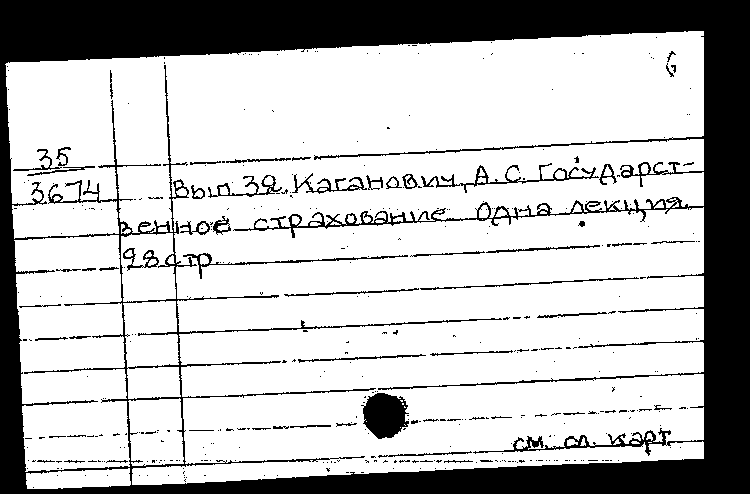 6
35
3674
Вып. 32. Каганович, А. С. Государст-
венное страхование. Одна лекция.
28 стр.
см. сл. карт.